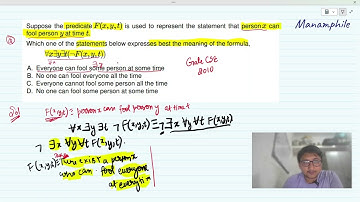 Manamphile
Suppose the predicate F(x,y,t) is used to represent the statement that person x can
fool person y at time t.
Which one of the statements below expresses best the meaning of the formula,
∀x∃y∃t(¬F(x,y,t))
A. Everyone can fool some person at some time
B. No one can fool everyone all the time
C. Everyone cannot fool some person all the time
D. No one can fool some person at some time
Grade CSE
2010
Sol
F(x,y,t) = person x can fool person y at time t
∀x ∃y ∃t ¬F(x,y,t) ≡ ¬∃x ∀y ∀t F(x,y,t)
¬ ∃x ∀y ∀t F(x,y,t).
F(x,y,t) = There exist a person x
who can fool everyone
at everytim